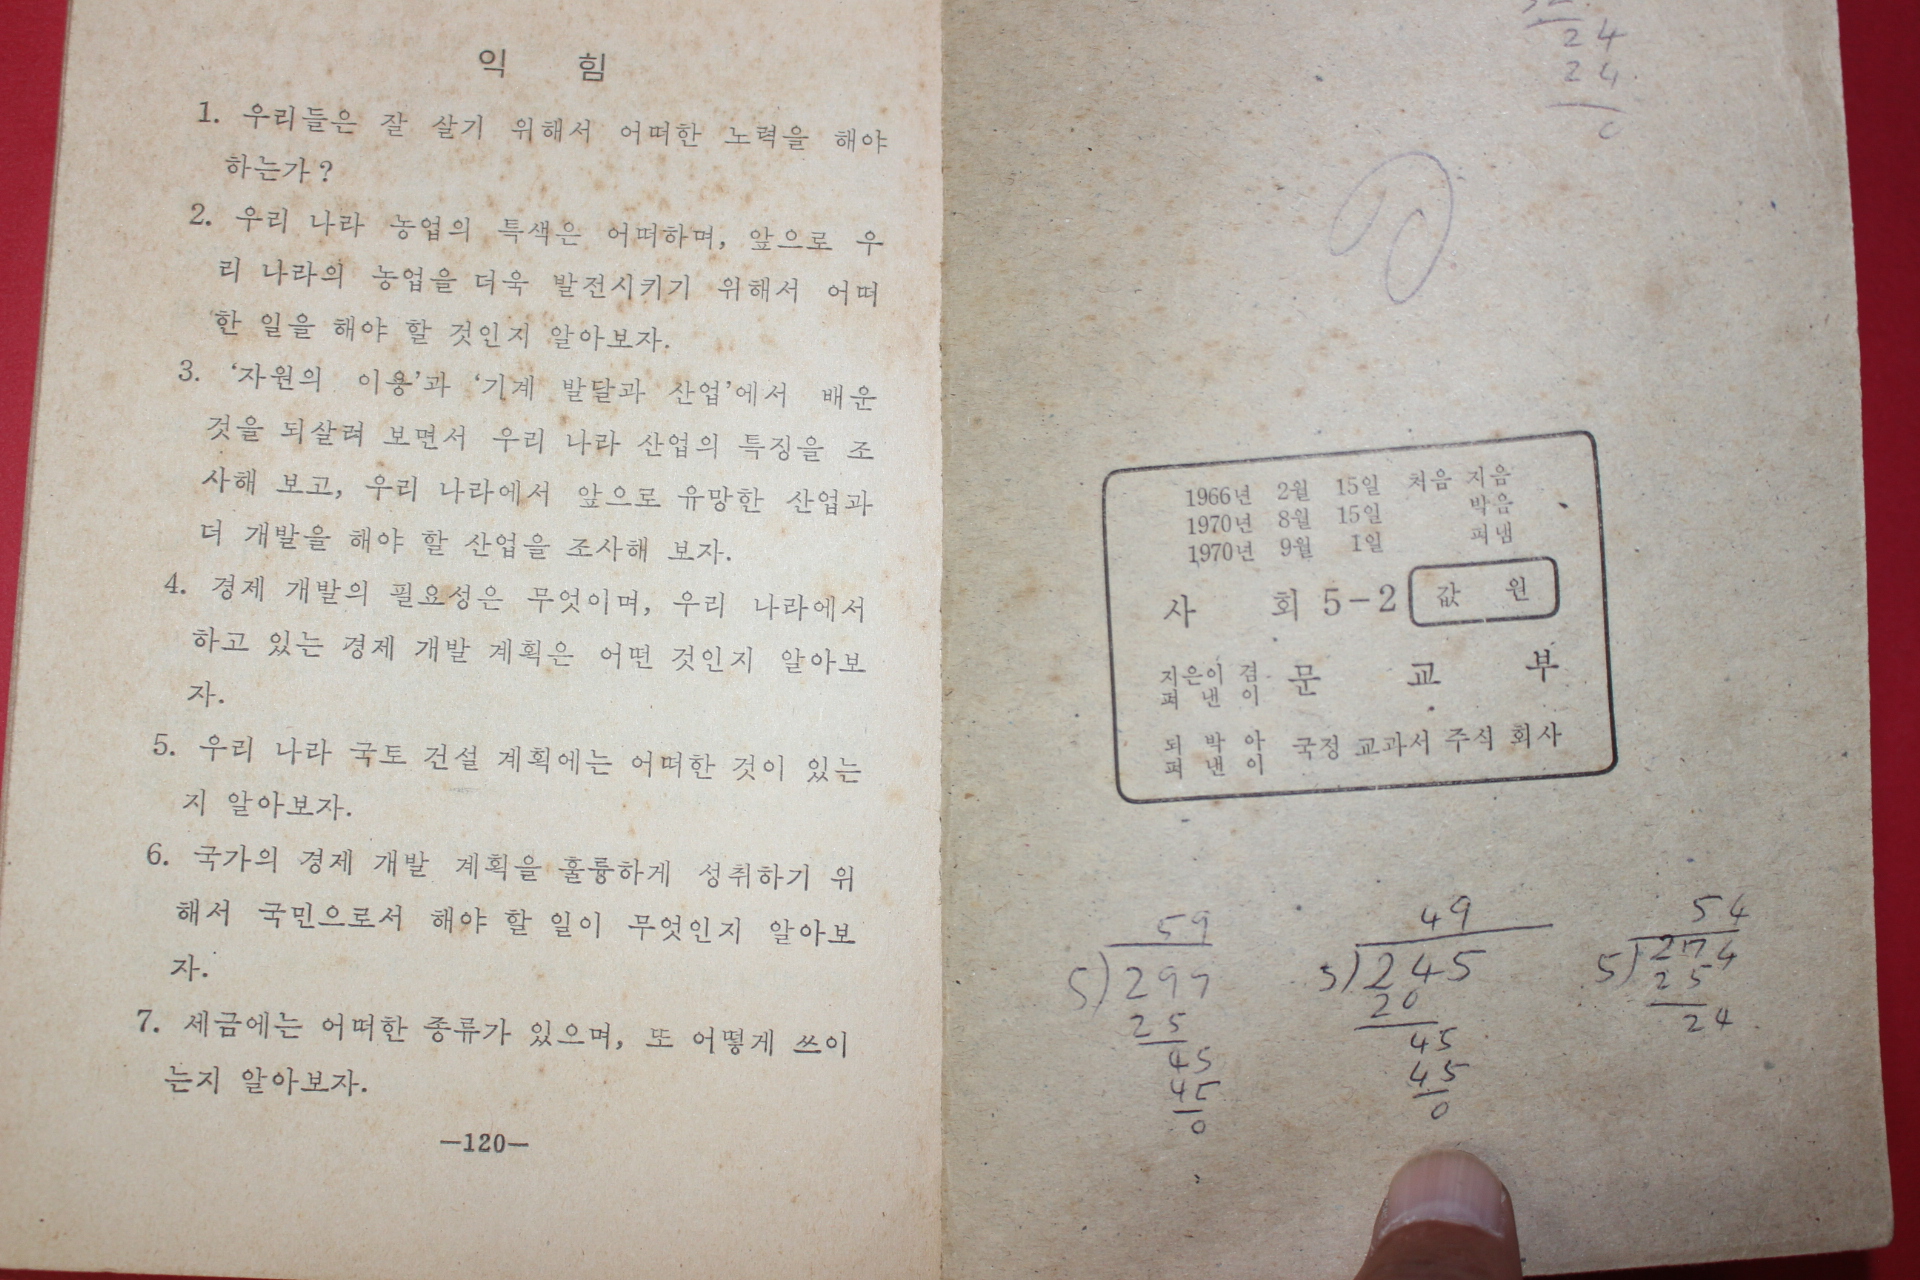 익 힘
1. 우리들은 잘 살기 위해서 어떠한 노력을 해야
하는가?
2. 우리 나라 농업의 특색은 어떠하며, 앞으로 우
리 나라의 농업을 더욱 발전시키기 위해서 어떠
한 일을 해야 할 것인지 알아보자.
3. ‘자원의 이용’과 ‘기계 발달과 산업’에서 배운
것을 되살려 보면서 우리 나라 산업의 특징을 조
사해 보고, 우리 나라에서 앞으로 유망한 산업과
더 개발을 해야 할 산업을 조사해 보자.
4. 경제 개발의 필요성은 무엇이며, 우리 나라에서
하고 있는 경제 개발 계획은 어떤 것인지 알아보
자.
5. 우리 나라 국토 건설 계획에는 어떠한 것이 있는
지 알아보자.
6. 국가의 경제 개발 계획을 훌륭하게 성취하기 위
해서 국민으로서 해야 할 일이 무엇인지 알아보
자.
7. 세금에는 어떠한 종류가 있으며, 또 어떻게 쓰이
는지 알아보자.
—120—
24
24
0
1966년 2월 15일 처음 지음
1970년 8월 15일 박음
1970년 9월 1일 펴냄
사 회 5-2 값 원
지은이 겸
펴 낸 이 문 교 부
되 박 아
펴 낸 이 국정 교과서 주식 회사
59
5)297
25
45
45
0
49
5)245
20
45
45
0
54
5)274
25
24